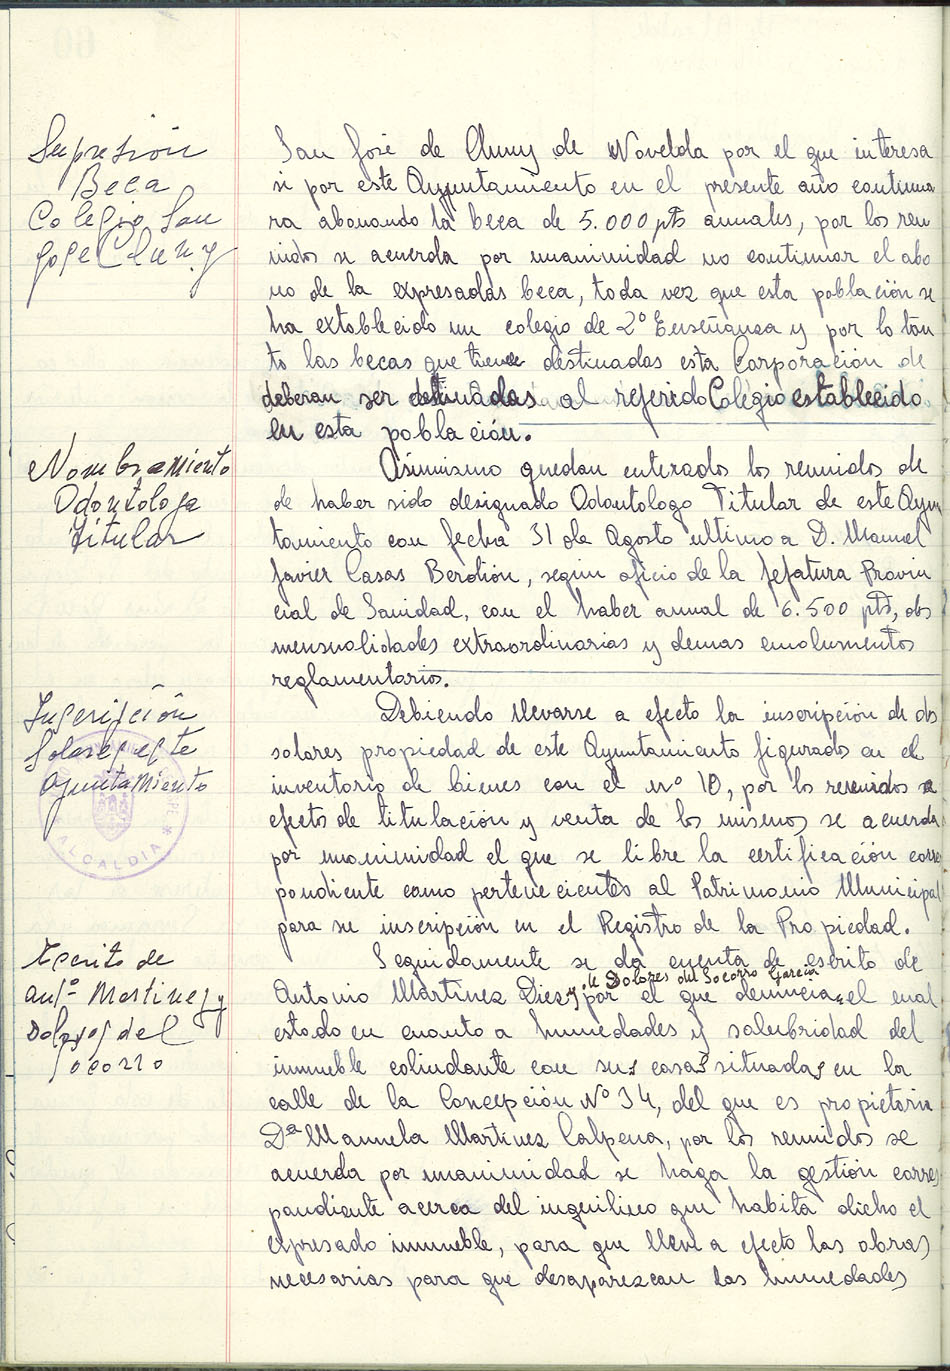 Supresión
Beca
Colegio San
José Cluny
San José de Cluny de Novelda por el que interesa
si por este Ayuntamiento en el presente año continua
ra abonando la beca de 5.000 pts anuales, por los reu
nidos se acuerda por unanimidad no continuar el abo
no de la expresadas beca, toda vez que esta población se
ha extablecido un colegio de 2º Enseñanza y por lo tan
to las becas que tiene destinadas esta Corporación de
deberan ser destinadas al referido Colegio establecido
en esta población.
Nombramiento
Odontólogo
titular
Asimismo quedan enterados los reunidos de
de haber sido designado Odontologo Titular de este Ayun
tamiento con fecha 31 de Agosto ultimo a D. Manuel
Javier Casas Berdión, segun oficio de la Jefatura Provin
cial de Sanidad, con el haber anual de 6.500 pts, dos
mensualidades extraordinarias y demas emolumentos
reglamentarios.
Inscripción
Solares este
Ayuntamiento
ALCALDIA
Debiendo llevarse a efecto la inscripción de dos
solares propiedad de este Ayuntamiento figurado en el
inventario de bienes con el nº 10, por los reunidos a
efecto de titulación y venta de los mismos se acuerda
por unanimidad el que se libre la certificación corres
pondiente como pertenecientes al Patrimonio Municipal
para su inscripción en el Registro de la Propiedad.
Escrito de
Antº Martinez y
Dolores del
Socorro
Seguidamente se da cuenta de escrito de
Antonio Martinez Diez y de Dolores del Socorro García por el que denuncian el mal
estado en cuanto a humedades y salubridad del
inmueble colindante con sus casas situadas en la
calle de la Concepción Nº 34, del que es propietaria
Dª Manuela Martinez Calpena, por los reunidos se
acuerda por unanimidad se haga la gestión corres
pondiente acerca del inquilino que habita dicho el
expresado inmueble, para que lleve a efecto las obras
necesarias para que desaparezcan las humedades